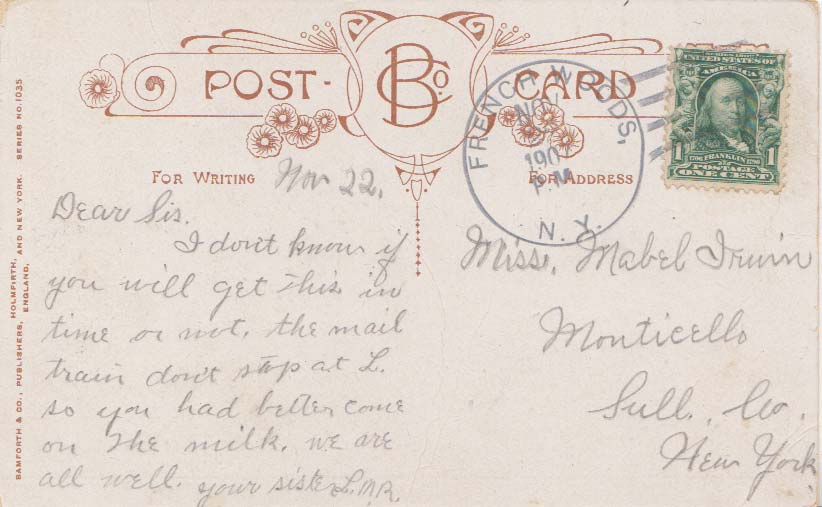 POST- BCo CARD
FOR WRITING
FOR ADDRESS
Nov 22,
Dear Sis.
I don't know if
you will get this in
time or not. the mail
train don't stop at L.
so you had better come
on the milk. we are
all well. your sister L.M.R.
Miss. Mabel Irwin
Monticello
Sull. Co.
New York
FRENCH WOODS,
N. Y.
190
P M
UNITED STATES OF
AMERICA
1 1706 FRANKLIN 1790 1
POSTAGE
ONE CENT
BAMFORTH & CO., PUBLISHERS, HOLMFIRTH, AND NEW YORK. SERIES NO. 1035
ENGLAND,